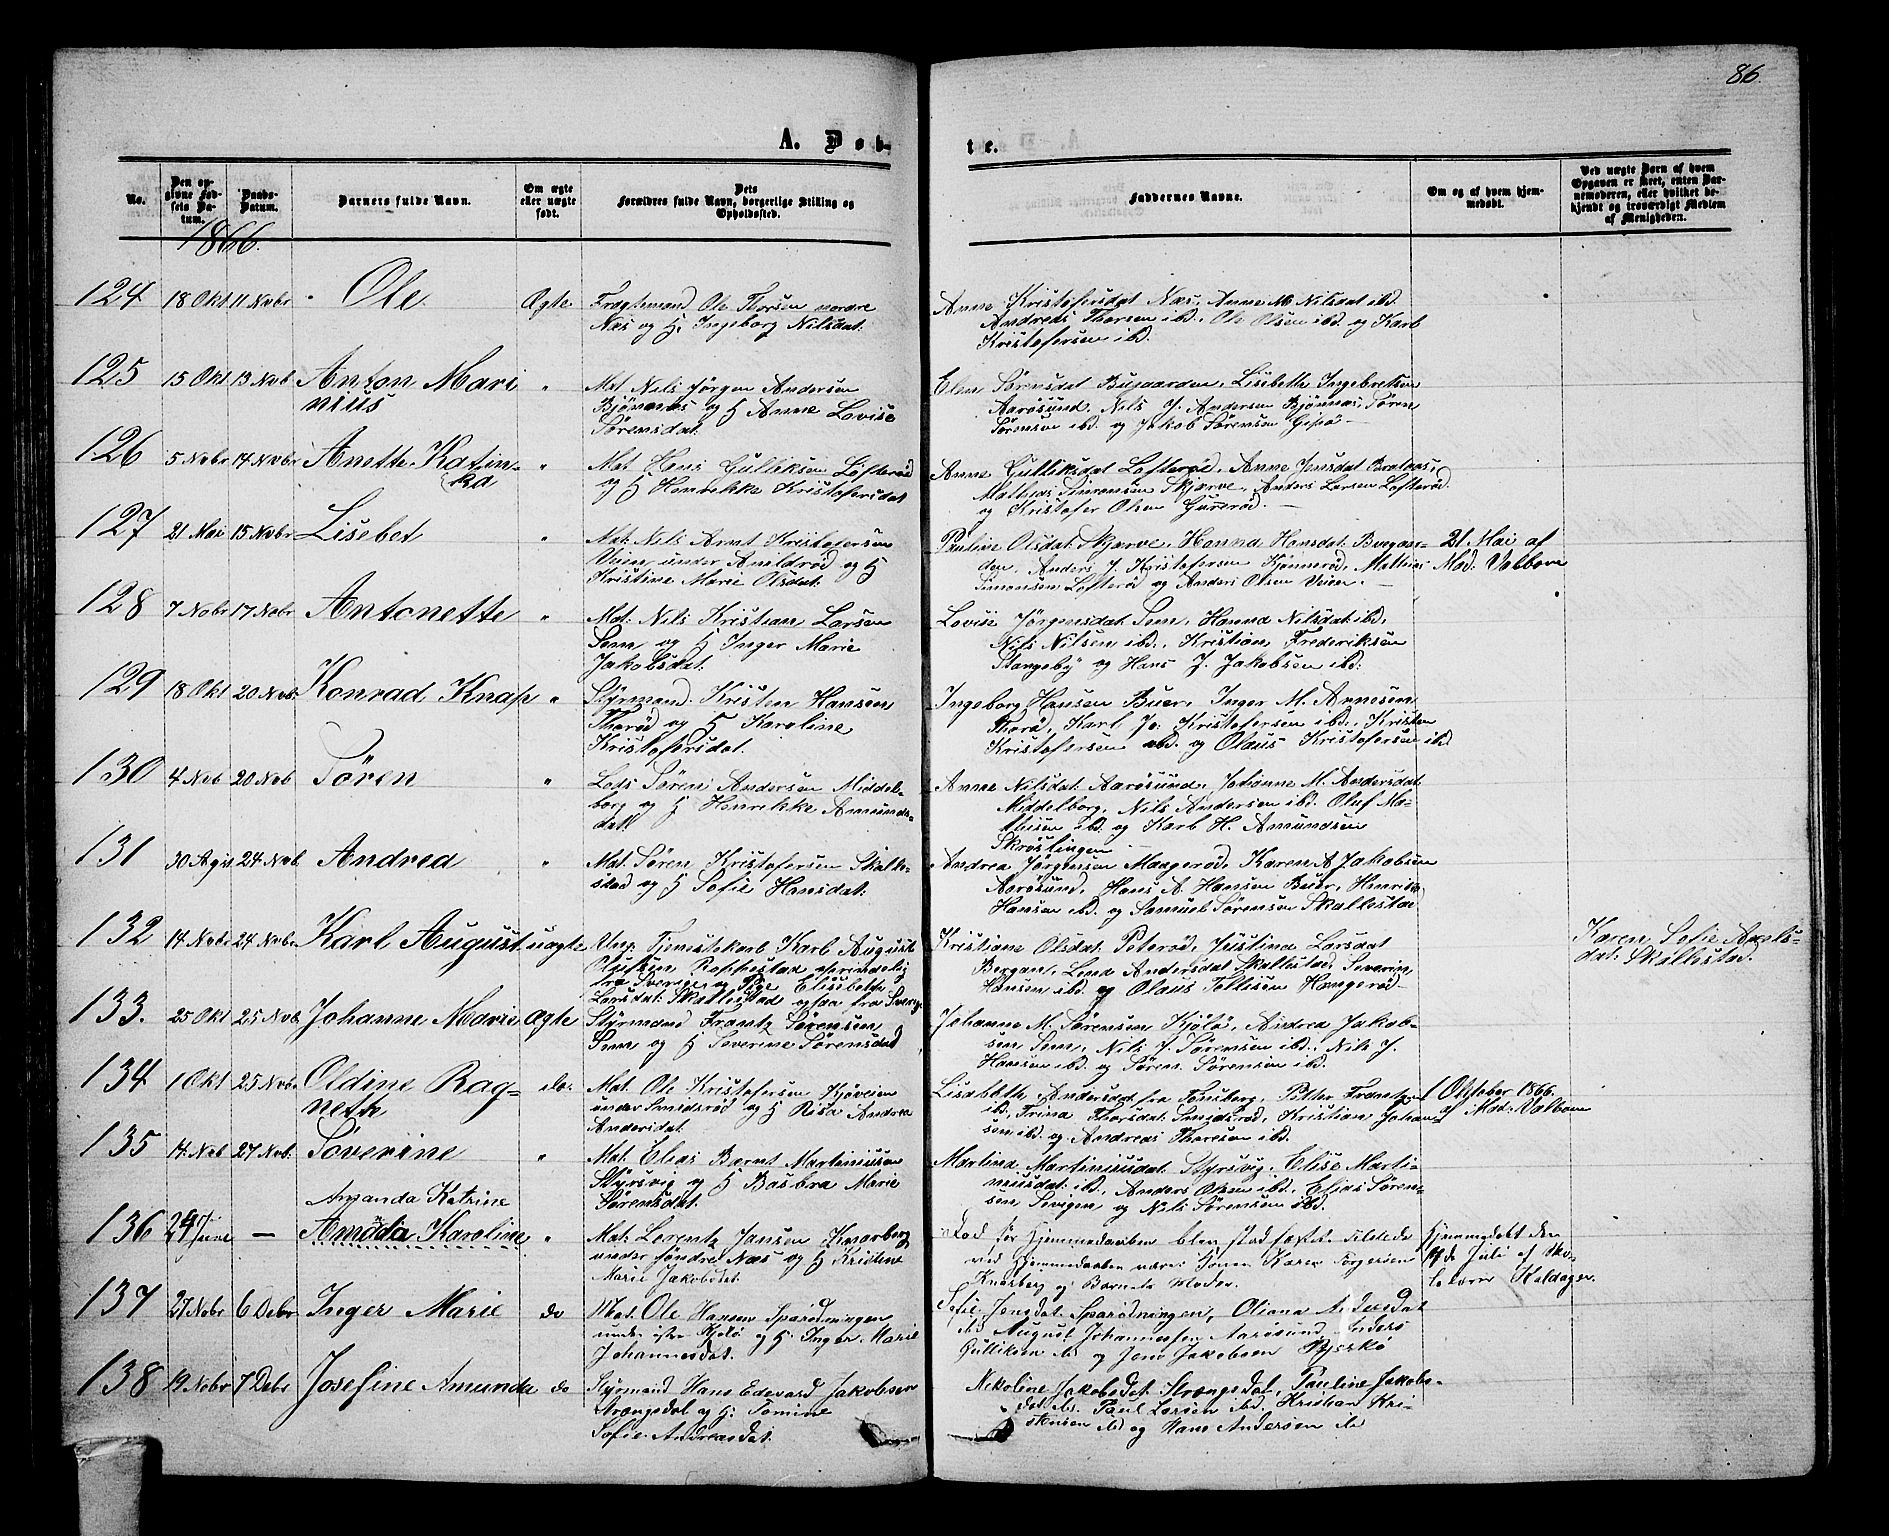 86.
A. Døb-
te.
No.
Den op-
givne Fød-
sels Da-
tum.
Daabs-
Datum.
Barnets fulde Navn.
Om ægte
eller uægte
født.
Dets
Forældres fulde Navn, borgerlige Stilling og
Opholdssted.
Faddernes Navne.
Om og af hvem hjem-
medøbt.
Ved uægte Børn af hvem
Opgaven er skeet, enten Bar-
nemoderen, eller hvilket be-
kjendt og troværdigt Medlem
af Menigheden.
1866.
124 18 Okt 11 Novbr Ole Ægte Fragtemand Ole Thorsen nordre
Næs og H. Ingeborg Nilsdat.
Anne Kristofersdat Næs, Anne M. Nilsdat ibd.
Andreas Thorsen ibd., Ole Olsen ibd. og Karl
Kristofersen ibd.
125 15 Okt 13 Novb Anton Mari
nius " Mat. Nils Jørgen Andersen
Bjønnæs og H Anne Lovise
Sørensdat.
Elen Sørensdat Bugaarden, Lisebeth Ingebretsen
Aarøsund, Nils J. Andersen Bjønnæs, Søren
Sørensen ibd. og Jakob Sørensen Gipø
126 5 Novbr 14 Novbr Anette Katin-
ka " Mat Hans Gulliksen Løfterød
og H Henrikke Kristofersdat
Anne Gulliksdat Løfterød, Anne Jensdat Brataas,
Mathias Simonsen Skjærve, Anders Larsen Løfterød
og Kristofer Olsen Gurerød.
127 21 Mai 15 Novbr Lisebet " Mat. Nils Arnt Kristofersen
Veien under Amildrød og H
Kristine Marie Olsdat.
Pauline Olsdat Skjærve, Hanna Hansdat Buegaar-
den, Anders J. Kristofersen Kjønnerød, Mathias
Simonsen Løfterød og Anders Olsen Veien.
21 Mai af
Mad. Valbove
128 7 Novbr 17 Novbr Antonette " Mat. Nils Kristian Larsen
Sem og H Inger Marie
Jakobsdat.
Lovise Jørgensdat Sem, Hanna Nilsdat ibd,
Nils Nilsen ibd., Kristian Frederiksen
Stangeby og Hans J. Jakobsen ibd.
129 18 Okt 20 Novbr Konrad Knap " Styrmand Kristen Hansen
Thorød og H Karoline
Kristofersdat.
Ingeborg Hansen Buer, Inger M. Annesen
Thorø, Karl Jo. Kristofersen ibd., Kristen
Kristofersen ibd. og Olaus Kristofersen ibd
130 4 Novb 20 Novb Sören " Lods Sören Andersen Middel-
borg og H Henrikke Amunds-
dat.
Anne Nilsdat Aarøsund, Johanne M. Andersdat
Middelborg, Nils Andersen ibd. Oluf Ma-
thisen ibd. og Karl H. Amundsen
Skrøslingen
131 30 24 Novb Andrea " Mat. Sören Kristofersen Skalle-
stad og H Sofie Hansdat.
Andrea Jørgensen Maagerød, Karen A Jakobsen
Aarøsund, Hans A. Hansen Buer, Henrik
Hansen ibd. og Samuel Sørensen Skallestad
132 14 Novbr 24 Novbr Karl August uægte Ung. Tjenestekarl Karl August
Olsen oprindelig
fra Sverige og Pige Elisabeth
Larsdat Skallestad ogsaa fra Sverig
Kristiane Olsdat Peterød, Justina Larsdat
Bergan, Lena Andersdat Skallestad, Severin
Hansen ibd. og Olaus Tollesen Haugerød
Karen Sofie Axels-
dat. Skallestad.
133. 25 Okt 25 Novb Johanne Marie Ægte Styrmand Frantz Sørensen
Sem og H Severine Sørensdat
Johanne M. Sørensen Kjøló, Andrea Jakob-
sen Sem, Nils J. Sørensen ibd., Nils J.
Hansen ibd. og Søren Sørensen ibd.
134 1 Okt 25 Novbr Oldine Rag-
nette do. Mat. Ole Kristofersen Kjøveien
under Smidsrød og H Risa Andrea
Andersdat.
Lisabeth Andersdat fra Tønsberg, Petter Frantzen
ibd., Trina Thorsdat Smidsrød, Kristian Johan-
sen ibd. og Andreas Thoresen ibd.
1 Oktober 1866
af Mad. Valboe
135 14 Nob 27 Nob. Søverine " Mat. Elias Bernt Martiniussen
Styrsvig og H Basbra Marie
Sørensdat.
Martina Martiniusdat Styrsvig, Elise Marti-
niusdat ibd., Anders Olsen ibd., Elias Søren-
sen Sevigen og Nils Sørensen ibd.
136 24 Juni — Amanda Katrine
Amanda Karoline " Mat. Lorentz Jansen Knarberg
under søndre Næs og H Kristine
Marie Jakobsdat.
for Hjemmedaaben blev stadfæstet. Tilstede
ved Hjemmedaaben være: Karen Torgersen
Knarberg og Barnets Moder.
Hjemmedøbt den
de Juli af Sko-
lelærer Kaldager.
137 27 Nobr 6 Debr Inger Marie do Mat. Ole Hansen Sparødningen
under østre Kjølø og H. Inger Marie
Johannesdat.
Sofie Jensdat Sparødningen, Oliana Andersdat
ibd August Johannessen Aarøsund, Anders
Gulliksen ibd og Jens Jakobsen Bjerkø
138 19 Nobr 7 Debr Josefine Amunda do Styrmand Hans Edevard Jakobsen
Strængsdal og H. Tomine
Sofie Andreasdat.
Nikoline Jakobsdat Strængsdal, Pauline Jakobs-
dat ibd. Paul Larsen ibd. Kristian Kri-
stensen ibd og Hans Andersen ibd